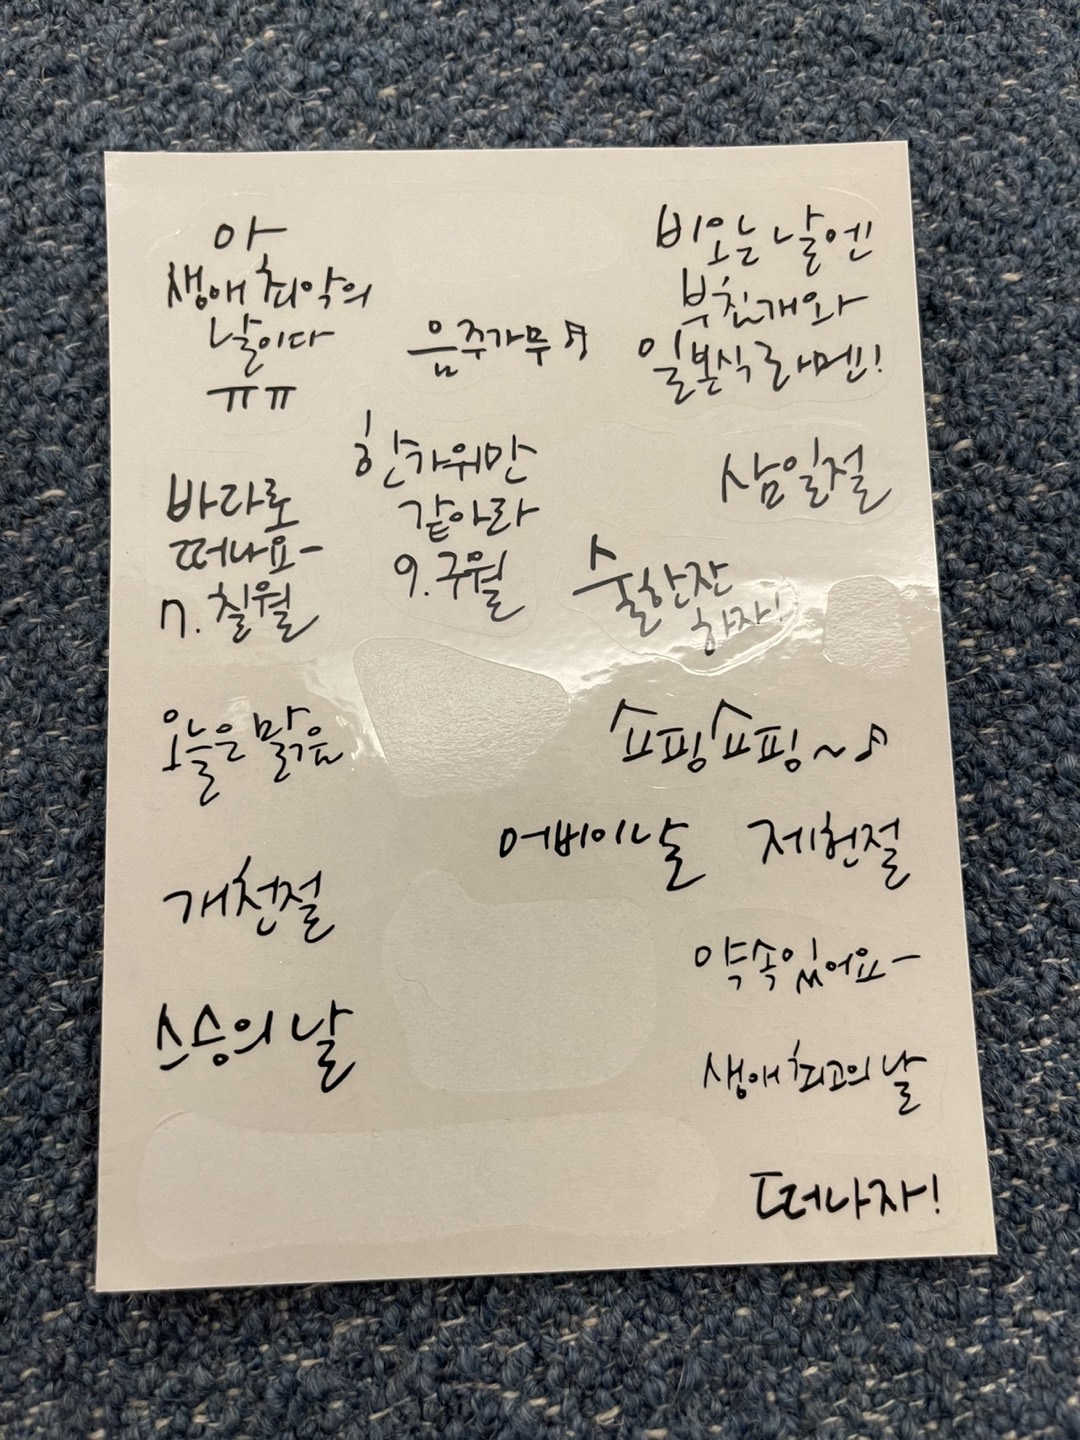 아
생애 최악의
날이다
ㅠㅠ
음주가무♬
비오는 날엔
부친개와
일본식 라멘!
한가위만
같아라
9.구월
삼일절
바다로
떠나요~
7.칠월
술한잔
하자!
오늘은 맑음
쇼핑쇼핑~♬
어버이날
제헌절
개천절
약속있어요~
스승의 날
생애 최고의 날
떠나자!